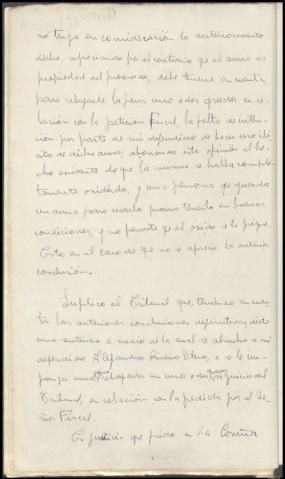 no tenga en consideración lo anteriormente
dicho, apreciando por el contrario que el arma es
propiedad del procesado, debe tenerse en cuenta,
para rebajarle la pena uno o dos grados en re-
lación con la petición Fiscal, la falta de inten-
ción por parte de mi defendido de hacer uso ilí-
cito de dicha arma, abonando esta opinión el he-
cho evidente de que la misma se halla comple-
tamente oxidada, y una persona que guarda
un arma para usarla procura tenerla en buenas
condiciones, y no permite que el óxido se la pique.
Esto en el caso de que no se aprecie la anterior
conclusión.
Suplico al Tribunal que, teniendo en cuen-
ta las anteriores conclusiones definitivas, dicte
una sentencia a medio de la cual se absuelva a mi
defendido Alejandro Riveiro Otero, o se le im-
ponga una pena rebajada en uno o dos grados a juicio del
Tribunal, en relación con la pedida por el Se-
ñor Fiscal.
Es justicia que pido en La Coruña